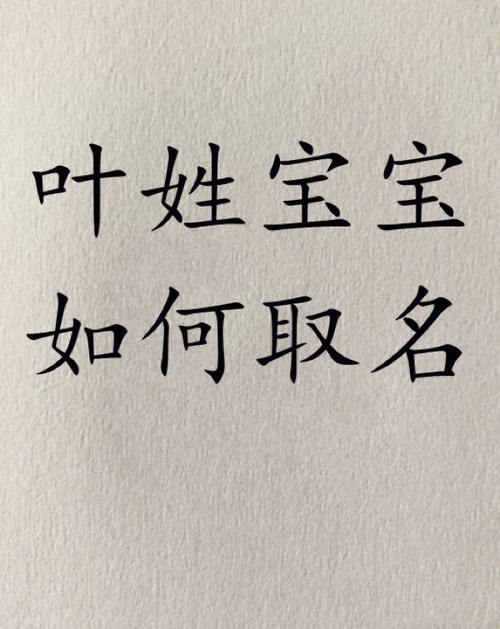 叶姓宝宝
如何取名